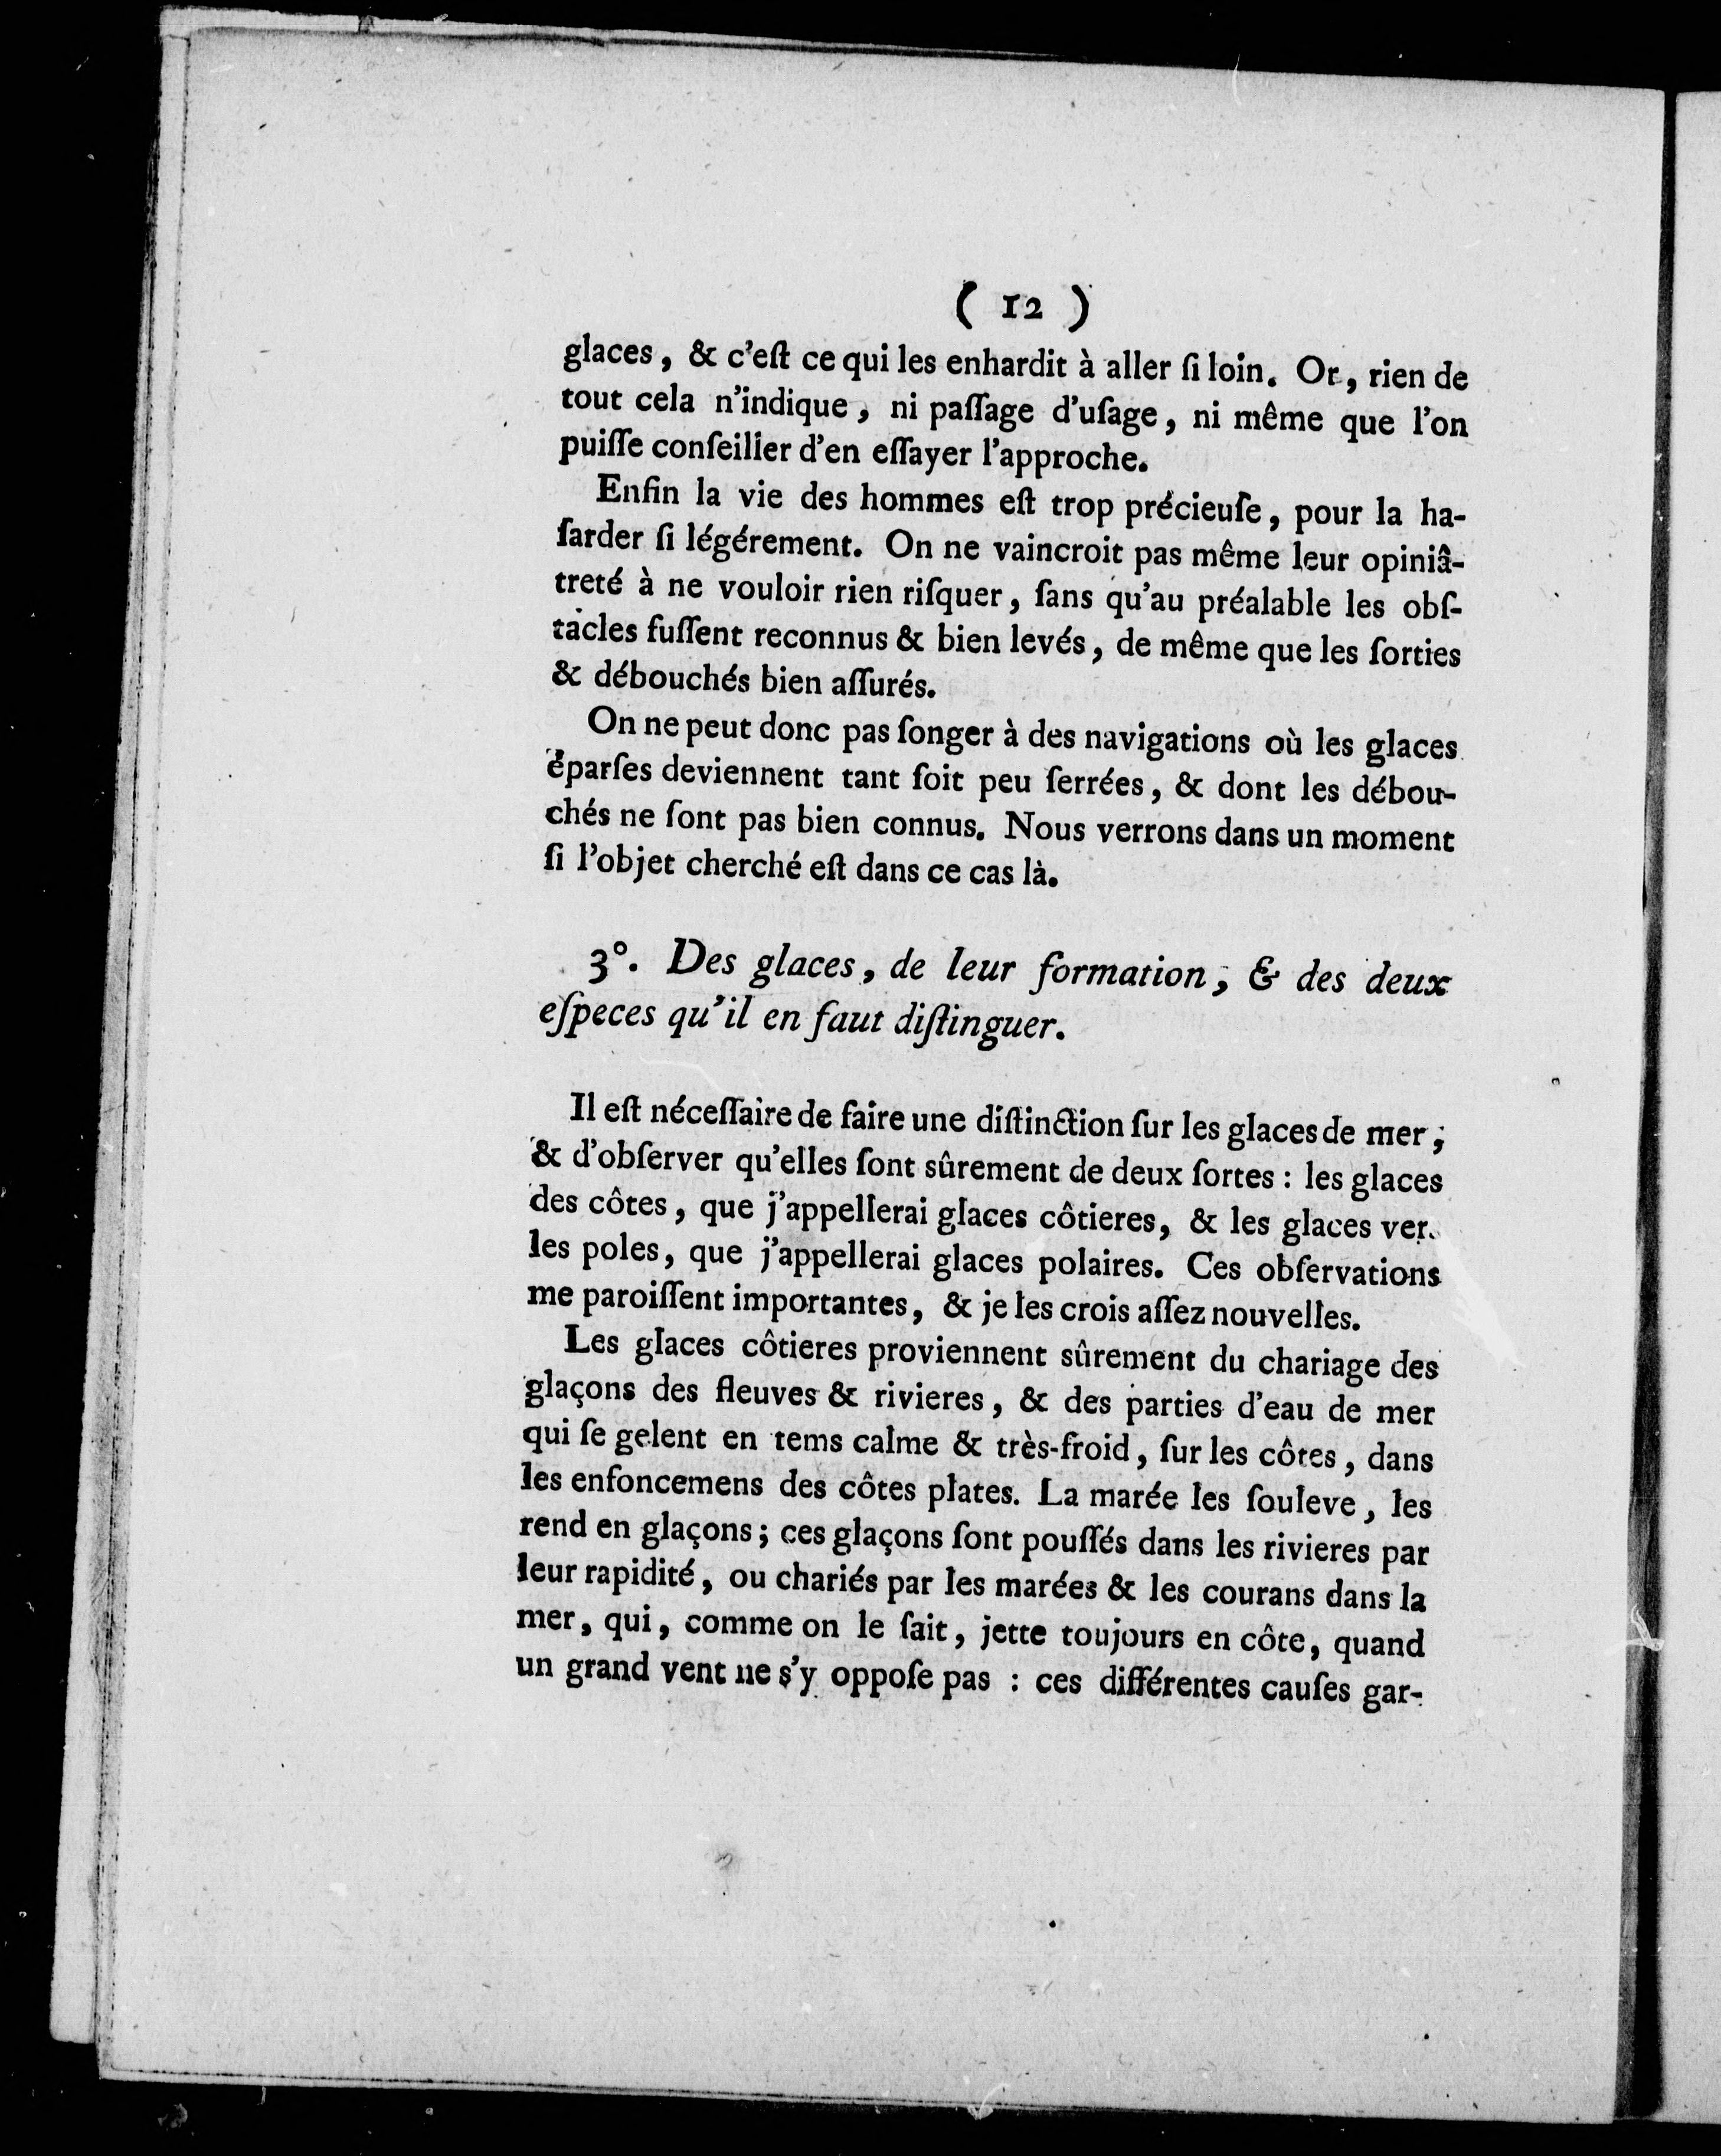 ( 12 )
glaces, & c'eſt ce qui les enhardit à aller ſi loin. Or, rien de
tout cela n'indique, ni paſſage d'uſage, ni même que l'on
puiſſe conſeiller d'en eſſayer l'approche.
Enfin la vie des hommes eſt trop précieuſe, pour la ha-
ſarder ſi légérement. On ne vaincroit pas même leur opiniâ-
treté à ne vouloir rien riſquer, ſans qu'au préalable les obſ-
tacles fuſſent reconnus & bien levés, de même que les ſorties
& débouchés bien aſſurés.
On ne peut donc pas ſonger à des navigations où les glaces
éparſes deviennent tant ſoit peu ſerrées, & dont les débou-
chés ne ſont pas bien connus. Nous verrons dans un moment
ſi l'objet cherché eſt dans ce cas là.
3°. Des glaces, de leur formation, & des deux
eſpeces qu'il en faut diſtinguer.
Il eſt néceſſaire de faire une diſtinction ſur les glaces de mer;
& d'obſerver qu'elles ſont sûrement de deux ſortes : les glaces
des côtes, que j'appellerai glaces côtieres, & les glaces vers
les poles, que j'appellerai glaces polaires. Ces obſervations
me paroiſſent importantes, & je les crois aſſez nouvelles.
Les glaces côtieres proviennent sûrement du chariage des
glaçons des fleuves & rivieres, & des parties d'eau de mer
qui ſe gelent en tems calme & très-froid, ſur les côtes, dans
les enfoncemens des côtes plates. La marée les ſouleve, les
rend en glaçons; ces glaçons ſont pouſſés dans les rivieres par
leur rapidité, ou chariés par les marées & les courans dans la
mer, qui, comme on le ſait, jette toujours en côte, quand
un grand vent ne s'y oppoſe pas : ces différentes cauſes gar-